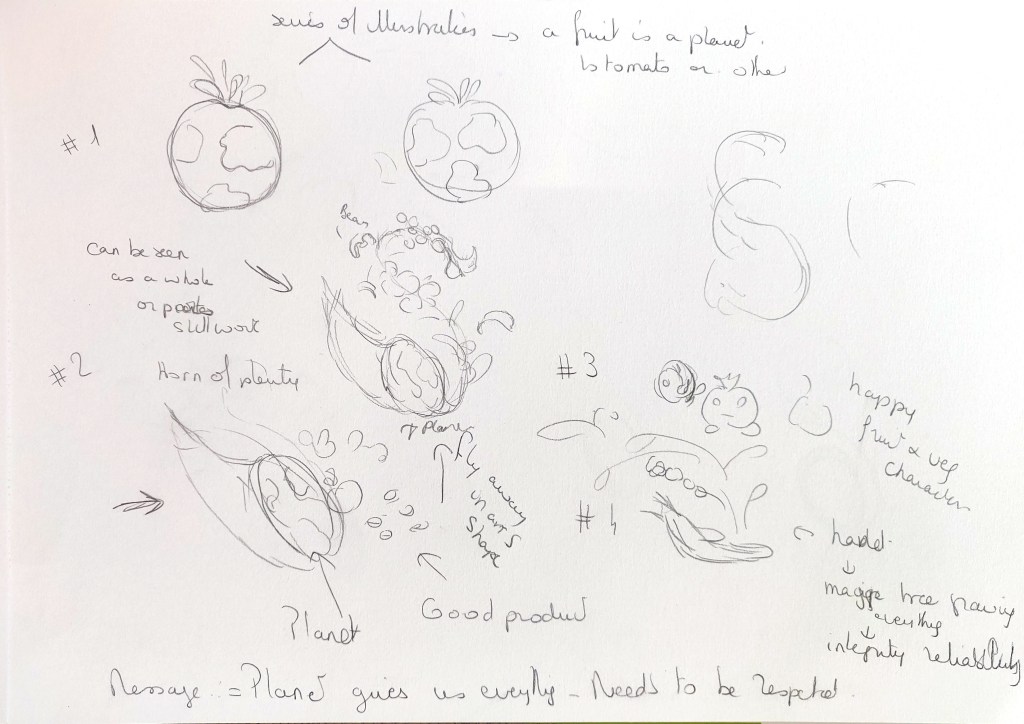 series of illustrations → a fruit is a planet.
↳ tomato or other
#1
Bean
can be seen
as a whole
or parts
still work
#2
Horn of plenty
→ Plane
#3
happy
fruit & veg
characters
fly away
in an S
shape
#4
↓
magic tree growing
everything
↓
integrity reliability
Good product
Planet
Message := Planet gives us everythg - Needs to be respected.